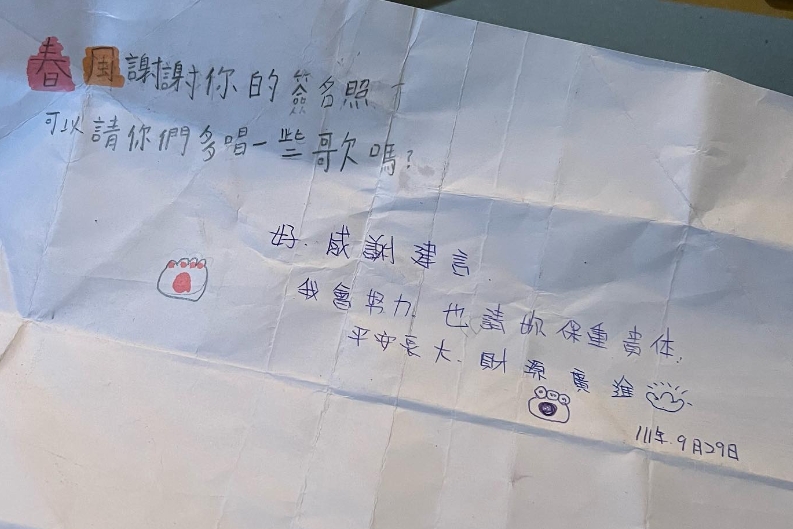 春風謝謝你的簽名照
可以請你們多唱一些歌嗎?
好. 感謝建言.
我會努力. 也請妳保重貴体.
平安長大. 財源廣進
111年. 9月29日